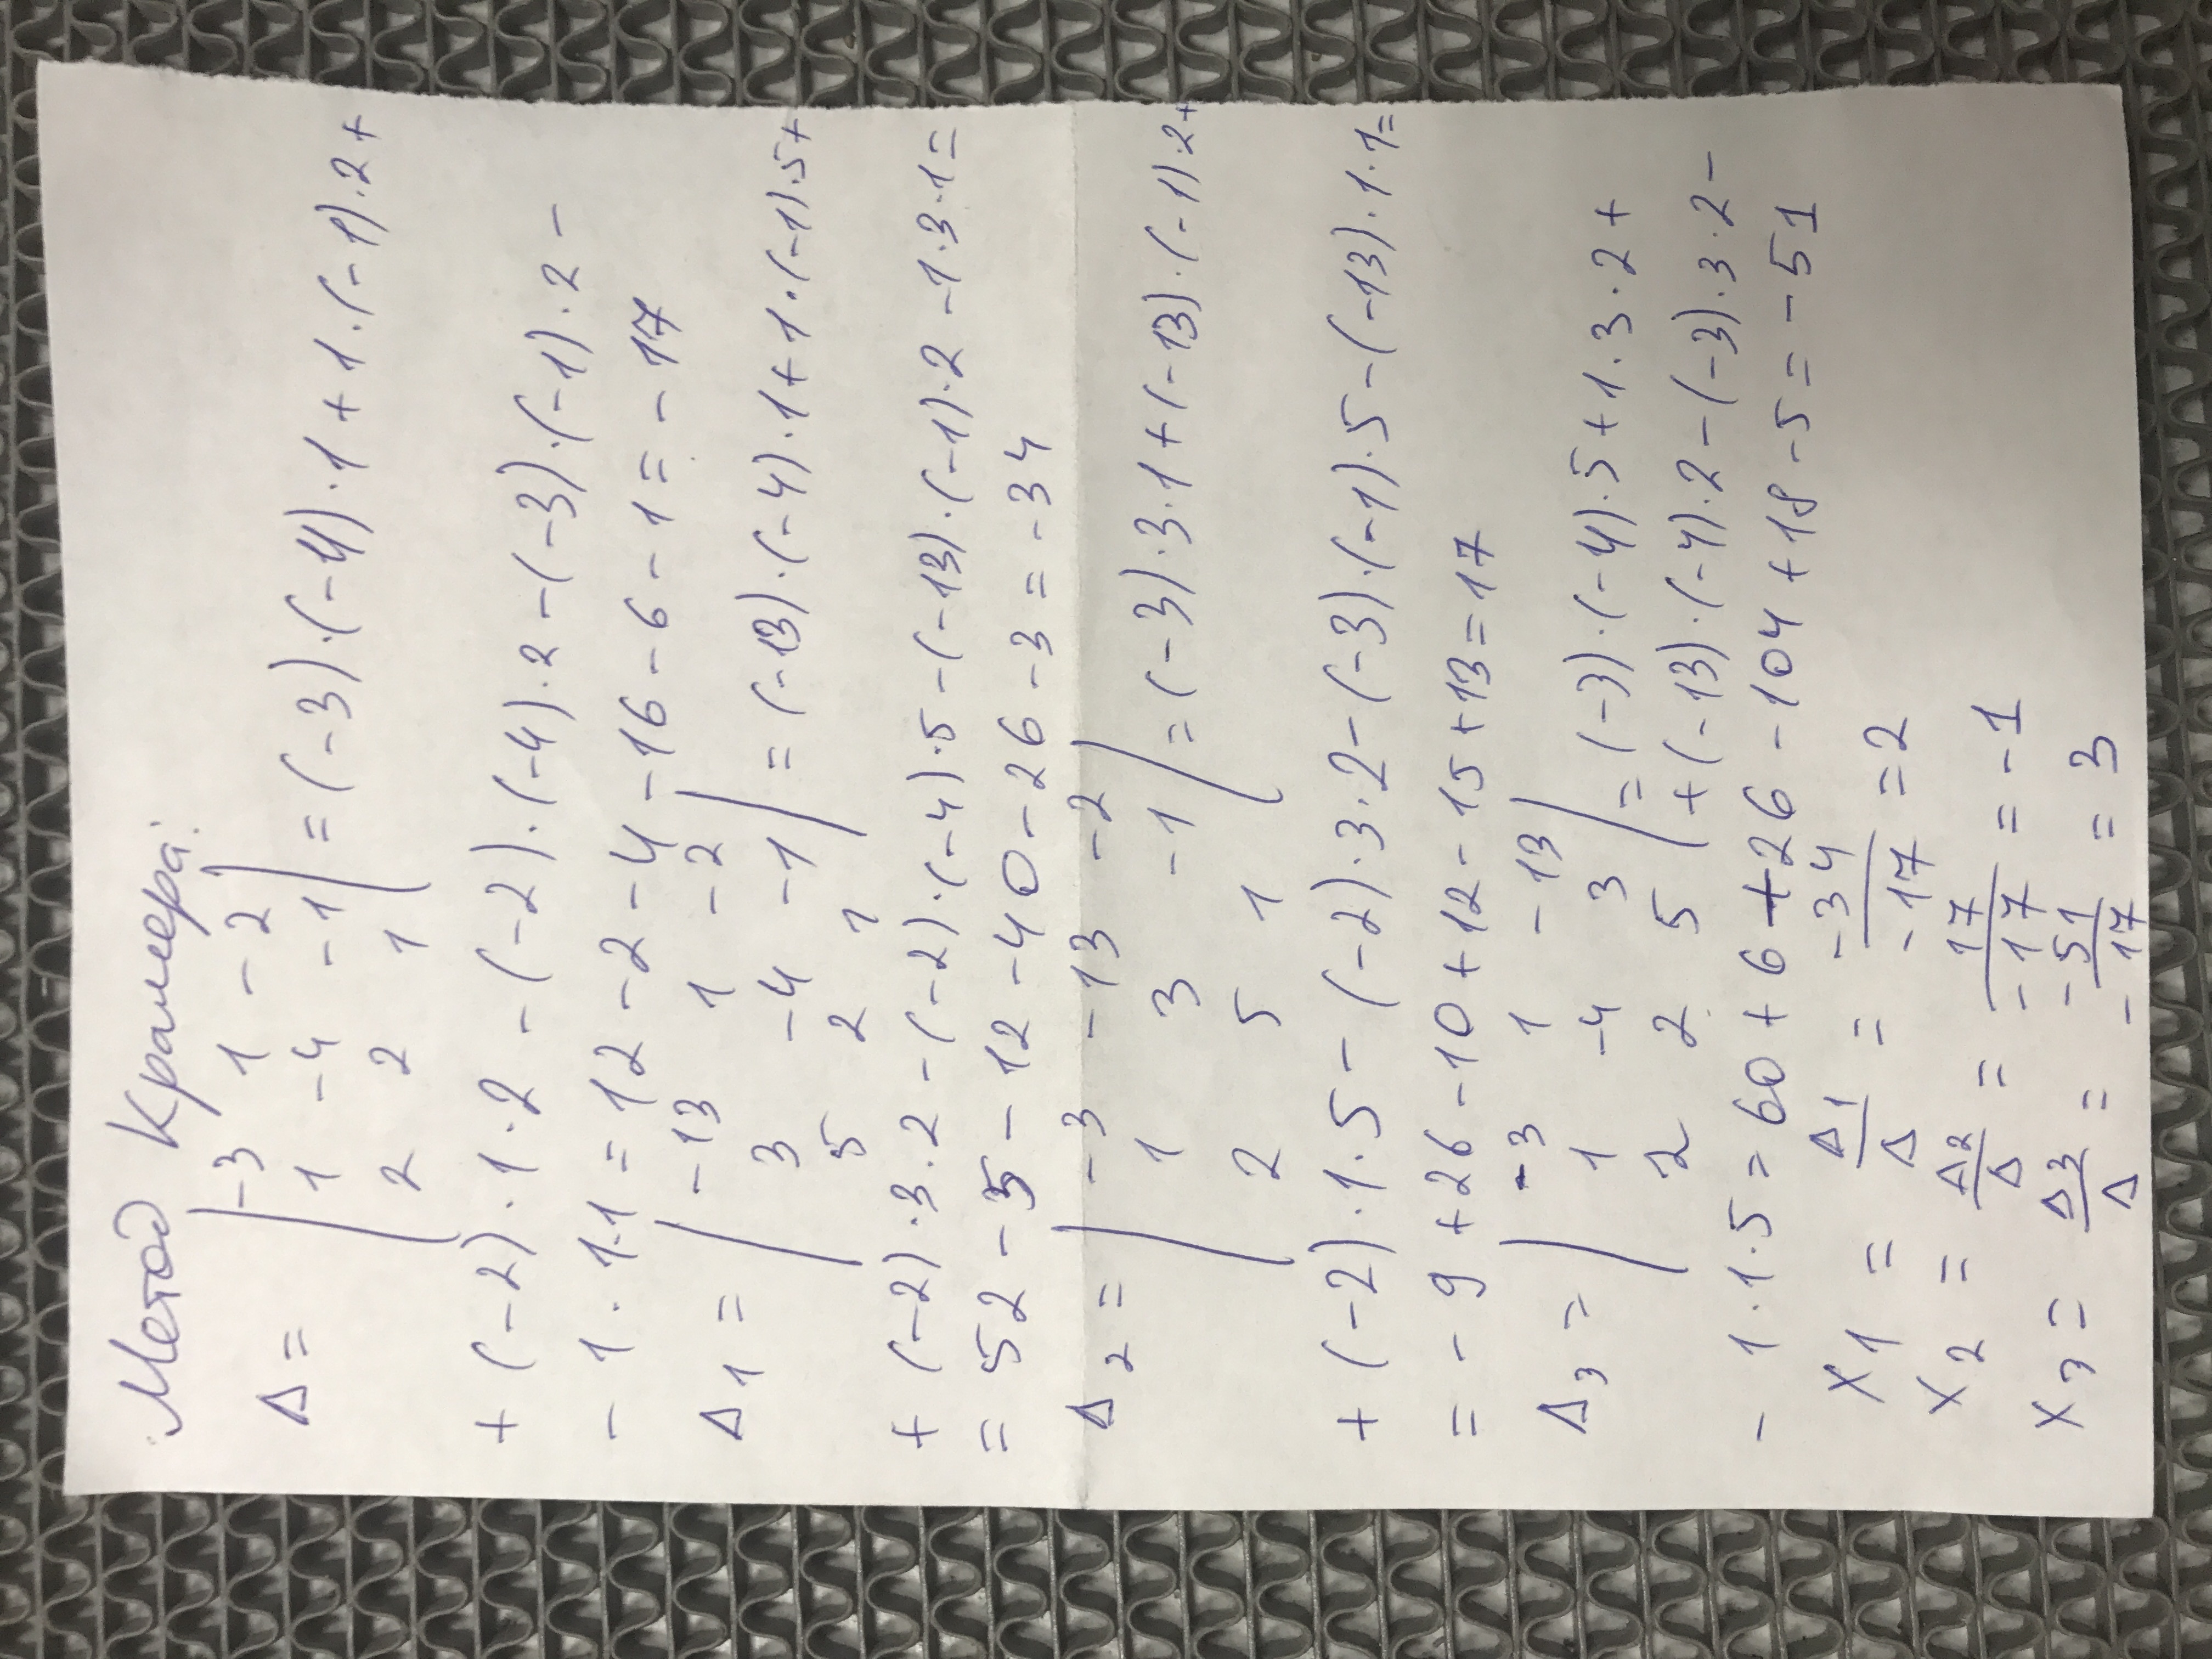 Метод Крамера:
-3 1 -2
Δ = | 1 -4 -1 | = (-3)·(-4)·1+1·(-1)·2+
2 2 1
+(-2)·1·2-(-2)·(-4)·2-(-3)·(-1)·2-
-1·1·1=12-2-4-16-6-1=-17
-13 1 -2
Δ1 = | 3 -4 -1 | = (-13)·(-4)·1+1·(-1)·5+
5 2 1
+(-2)·3·2-(-2)·(-4)·5-(-13)·(-1)·2-1·3·1=
=52-5-12-40-26-3=-34
-3 -13 -2
Δ2 = | 1 3 -1 | = (-3)·3·1+(-13)·(-1)·2+
2 5 1
+(-2)·1·5-(-2)·3·2-(-3)·(-1)·5-(-13)·1·1=
=-9+26-10+12-15+13=17
-3 1 -13
Δ3 = | 1 -4 3 | = (-3)·(-4)·5+1·3·2+
2 2 5 +(-13)·(-4)·2-(-3)·3·2-
-1·1·5=60+6+26-104+18-5=-51
X1 = Δ1/Δ = -34/-17 = 2
X2 = Δ2/Δ = 17/-17 = -1
X3 = Δ3/Δ = -51/-17 = 3